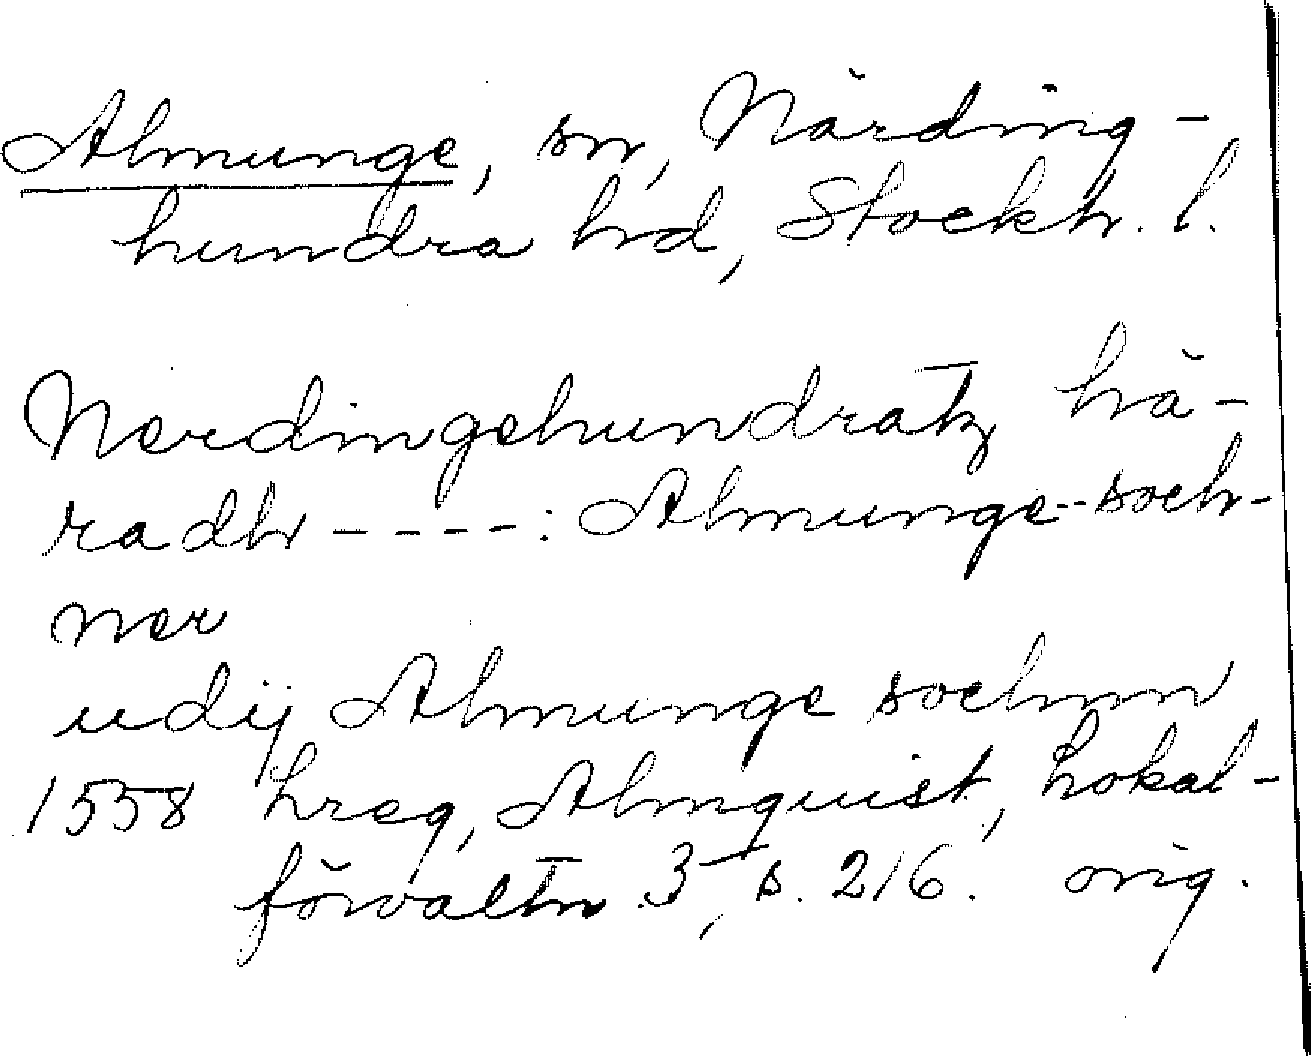 Almunge, sn, Närding-
hundra hd, Stockh. l.
Nerdingehundratz hä-
radh ----: Almunge-soch-
ner
udij Almunge sochnn
1558 hreg, Almquist, Lokal-
förvaltn 3, s. 216. orig.